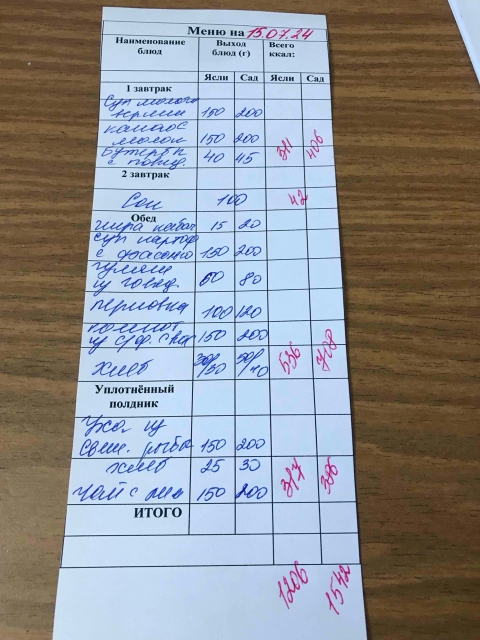 Меню на 15.07.24
Наименование блюд Выход блюд (г) Всего ккал:
Ясли Сад Ясли Сад
1 завтрак
Суп молоч
верми 150 200
какао с
молок 150 200
Бутерб
с повид. 40 45 311 406
2 завтрак
Сок 100 42
Обед
икра кабач 15 20
суп картоф
с фасолью 150 200
гуляш
из говяд. 60 80
перловка 100 120
компот
из с/фр. 150 200
хлеб 536 708
Уплотнённый
полдник
Уха из
свеж. рыбы 150 200
хлеб 25 30
Чай с 150 200 317
ИТОГО
1206 1542